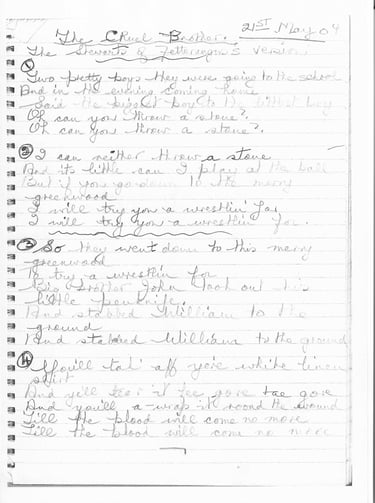 21ST May 09
The Cruel Brother.
The Stewarts of Fetterangus version.
1
Two pretty boys they were going to the school
And in the evening coming home
Said the biggest boy to the littlest boy
Oh can you throw a stone?.
Oh can you throw a stone?.
2 I can neither throw a stone
And its little can I play at the ball
But if you go down to the merry
greenwood
I will try you a wrestlin' for
I will try you a wrestlin' for.
3 So they went down to this merry
greenwood
To try a wrestlin for
Big brother John took out his
little penknife.
And stabbed William to the
ground
And stabbed William to the ground
4 You'll tak' aff yere white linen
And ye'll tear it fae gore tae gore
And you'll a-wrap it round the wound
Till the blood will come no more
Till the blood will come no more